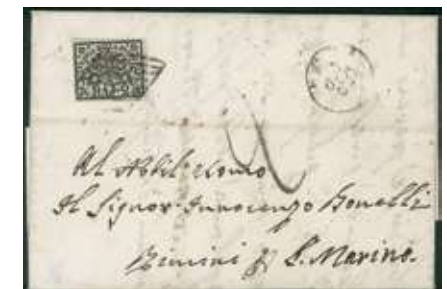 Al Nobil Uomo
Il Signor Innocenzo Bonelli
Rimini p S. Marino.